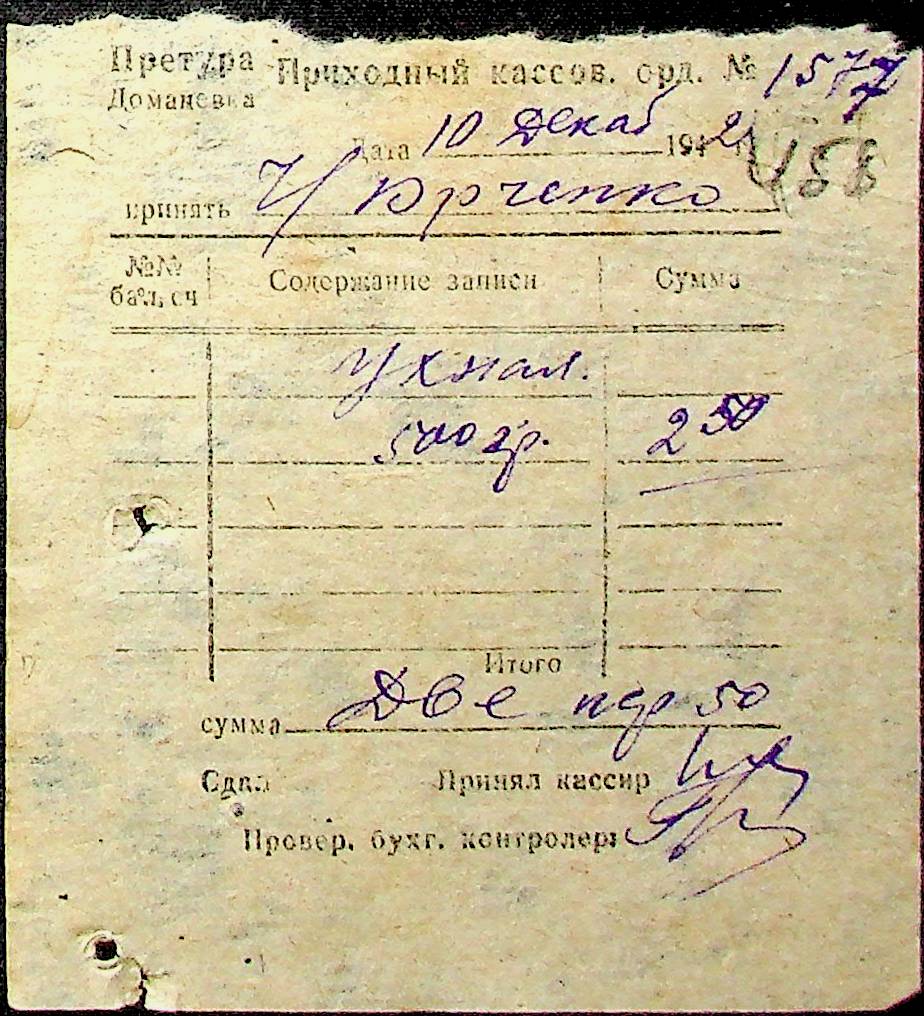 Претура Приходный кассов. орд. № 1577
Доманевка
Дата 10 Декаб 1942
458
принять Ч/ Юрченко
№№ бал. сч Содержание записи Сумма
Ухнал.
500 гр. 2 50
Итого
сумма Две 50
Сдал Принял кассир
Провер. бухг. контролер